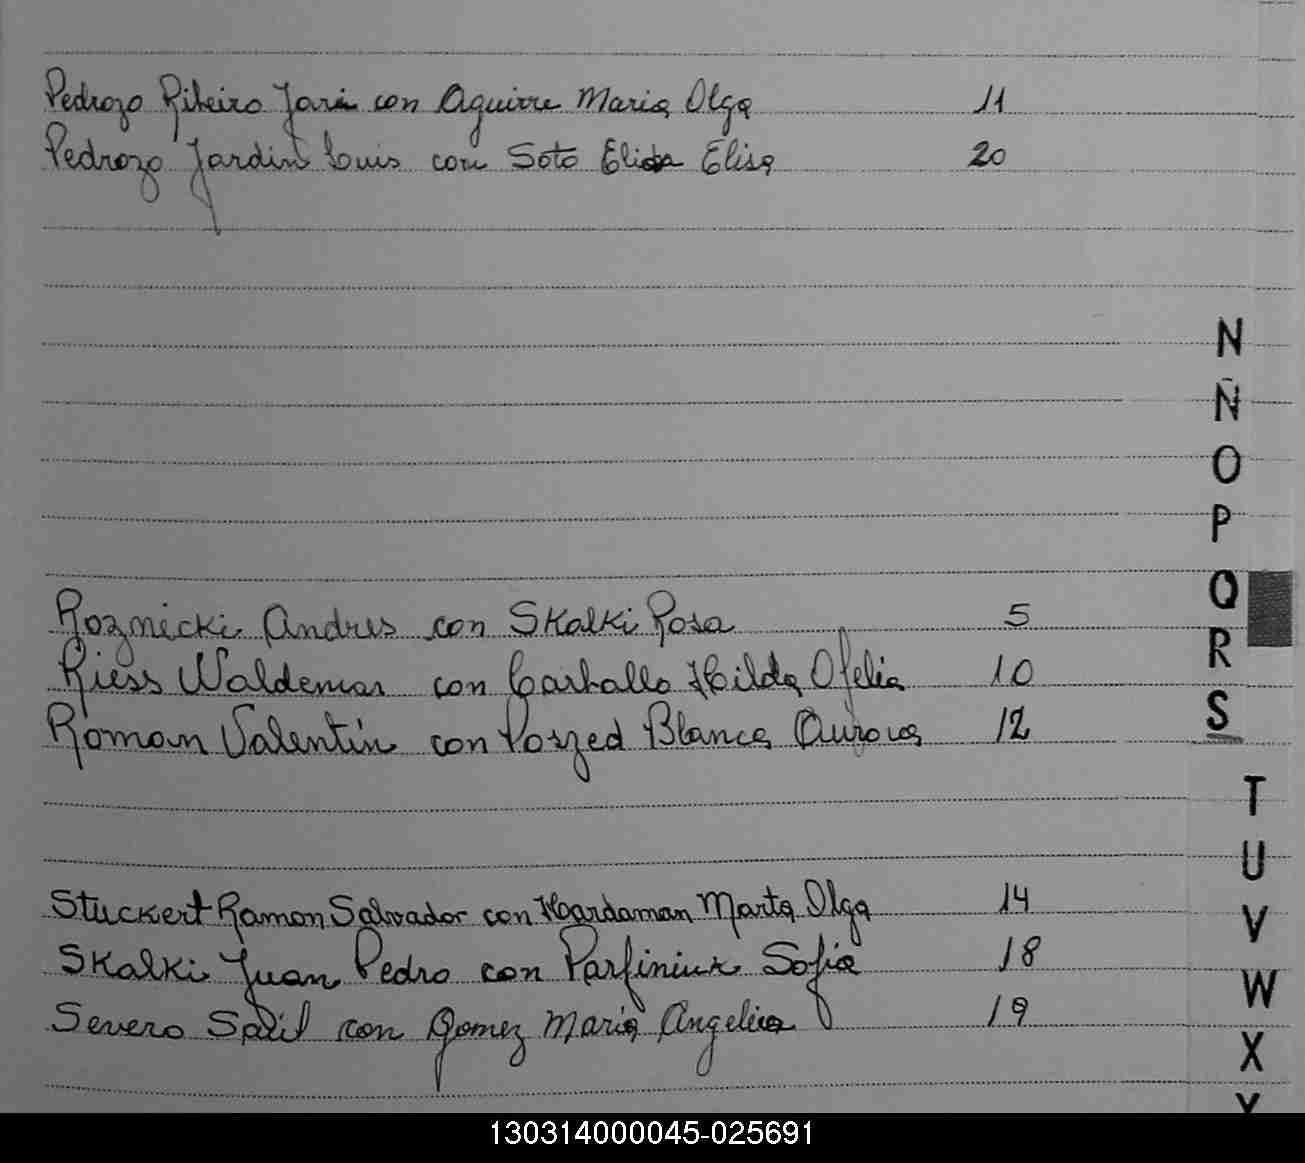 Pedrozo Ribeiro Jari con Aguirre Maria Olga 11
Pedrozo Jardin Luis con Soto Elida Elisa 20
N
Ñ
O
P
Q
Roznicki Andres con Skalki Rosa 5
R
Riess Waldemar con Carballo Hilda Ofelia 10
S
Roman Valentin con Poszed Blanca Aurora 12
T
U
Stuckert Ramon Salvador con Hardaman Marta Olga 14
V
Skalki Juan Pedro con Parfiniuk Sofia 18
W
Severo con Gomez Maria Angelica 19
X
Y
130314000045-025691